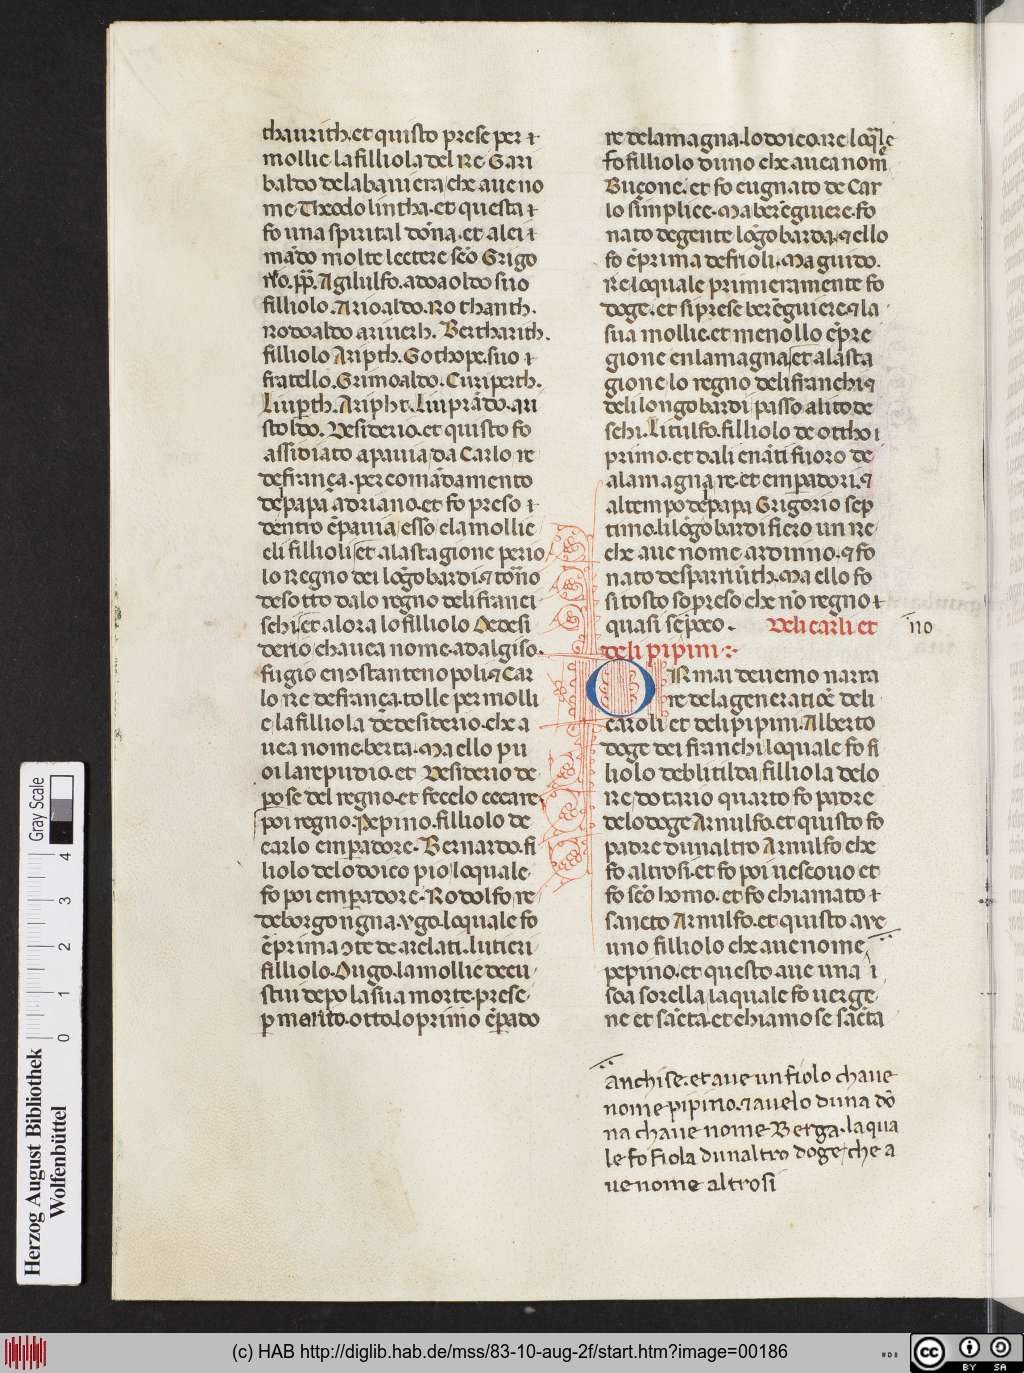 thaurith.et quisto prese per
mollie la filliola del re Gari
baldo de la baviera che ave no
me Theodolintha.et questa
fo una spirital dōna.et a lei
mādo molte lectere scō Grigo
rio.pp̄.Agilulfo.adoaoldo suo
filliolo.Arioaldo.Rothanth.
rodoaldo ariverh.Bertharith.
filliolo Aripth.Gothope.suo
fratello.Grimoaldo.Curiperth.
Luip̄th.Aripht.Luiprādo.
stoldo.Desiderio.et quisto fo
assidiato a pavia da Carlo re
de frança.per comādamento
de papa adriano.et fo preso
dentro ēpavia esso e la mollie
e li fillioli et a la stagione perio
lo Regno dei lōgobardi
de sotto da lo regno de li franci
schi et alora lo filliolo de desi
derio ch avea nome.adalgiso.
fugio en ostantenopoli Car
lo re de frança.tolle per molli
e la filliola de desiderio.che a
vea nome berta.Ma ello pu
oi la repudio.et Desiderio de
pose del regno.et fecelo cecare
poi regno.Pepino.filliolo de
carlo emp̄adore.Bernardo.fi
liolo de lodoico pio loquale
fo poi emp̄adore.Rodolfo re
de borgongna.Ygo.loquale fo
ēprima ɔte de arelati.Lutieri
filliolo.D ugo.la mollie de cu
stui depo la sua morte.prese
p marito.otto.lo primo ēpado
re de lamagna.lodoico.re loq̄le
fo filliolo d uno che avea nom̄
Buçone.et fo cugnato de Car
lo simplice.Ma berēguiere.fo
nato de gente lōgobarda.ello
fo ēprima de frioli.Ma guido.
Re loquale primieramente fo
doge.et si prese berēguiere.la
sua mollie.et menollo ēpre
gione en lamagna et a la sta
gione lo regno de li franchi
de li longobardi passo a li tode
schi.Litulfo.filliolo de ottho
primo.et da li enāti fuoro de
alamagna re.et emp̄adori.
al tempo de papa Grigorio sep
timo.li lōgobardi fiero un re
che ave nome ardinno.fo
nato de sparnuith.Ma ello fo
si tosto sopreso che nō regno
quasi se poco. Deli carli et
no
deli pipini
ORmai devemo narra
re de la generatiōe deli
caroli et deli pipini.Alberto
doge dei franchi loquale fo fi
liolo de blitilda filliola de lo
Re.dotario quarto fo padre
de lo doge Arnulfo.et quisto fo
padre d un altro Arnulfo che
fo altrosi.et fo poi vescovo et
fo scō homo.et fo chiamato
sancto Arnulfo.et quisto ave
uno filliolo che ave nome
pepino.et questo ave una
soa sorella laquale fo verge
ne et sācta.et chiamose sācta
anchise.et ave un fiolo ch ave
nome pipino.avelo d una dō
na ch ave nome Berga.la qua
le fo fiola d un altro doge che a
ve nome altrosi
Herzog August Bibliothek
Wolfenbüttel
Gray Scale
0 1 2 3 4
(c) HAB http://diglib.hab.de/mss/83-10-aug-2f/start.htm?image=00186
cc BY SA